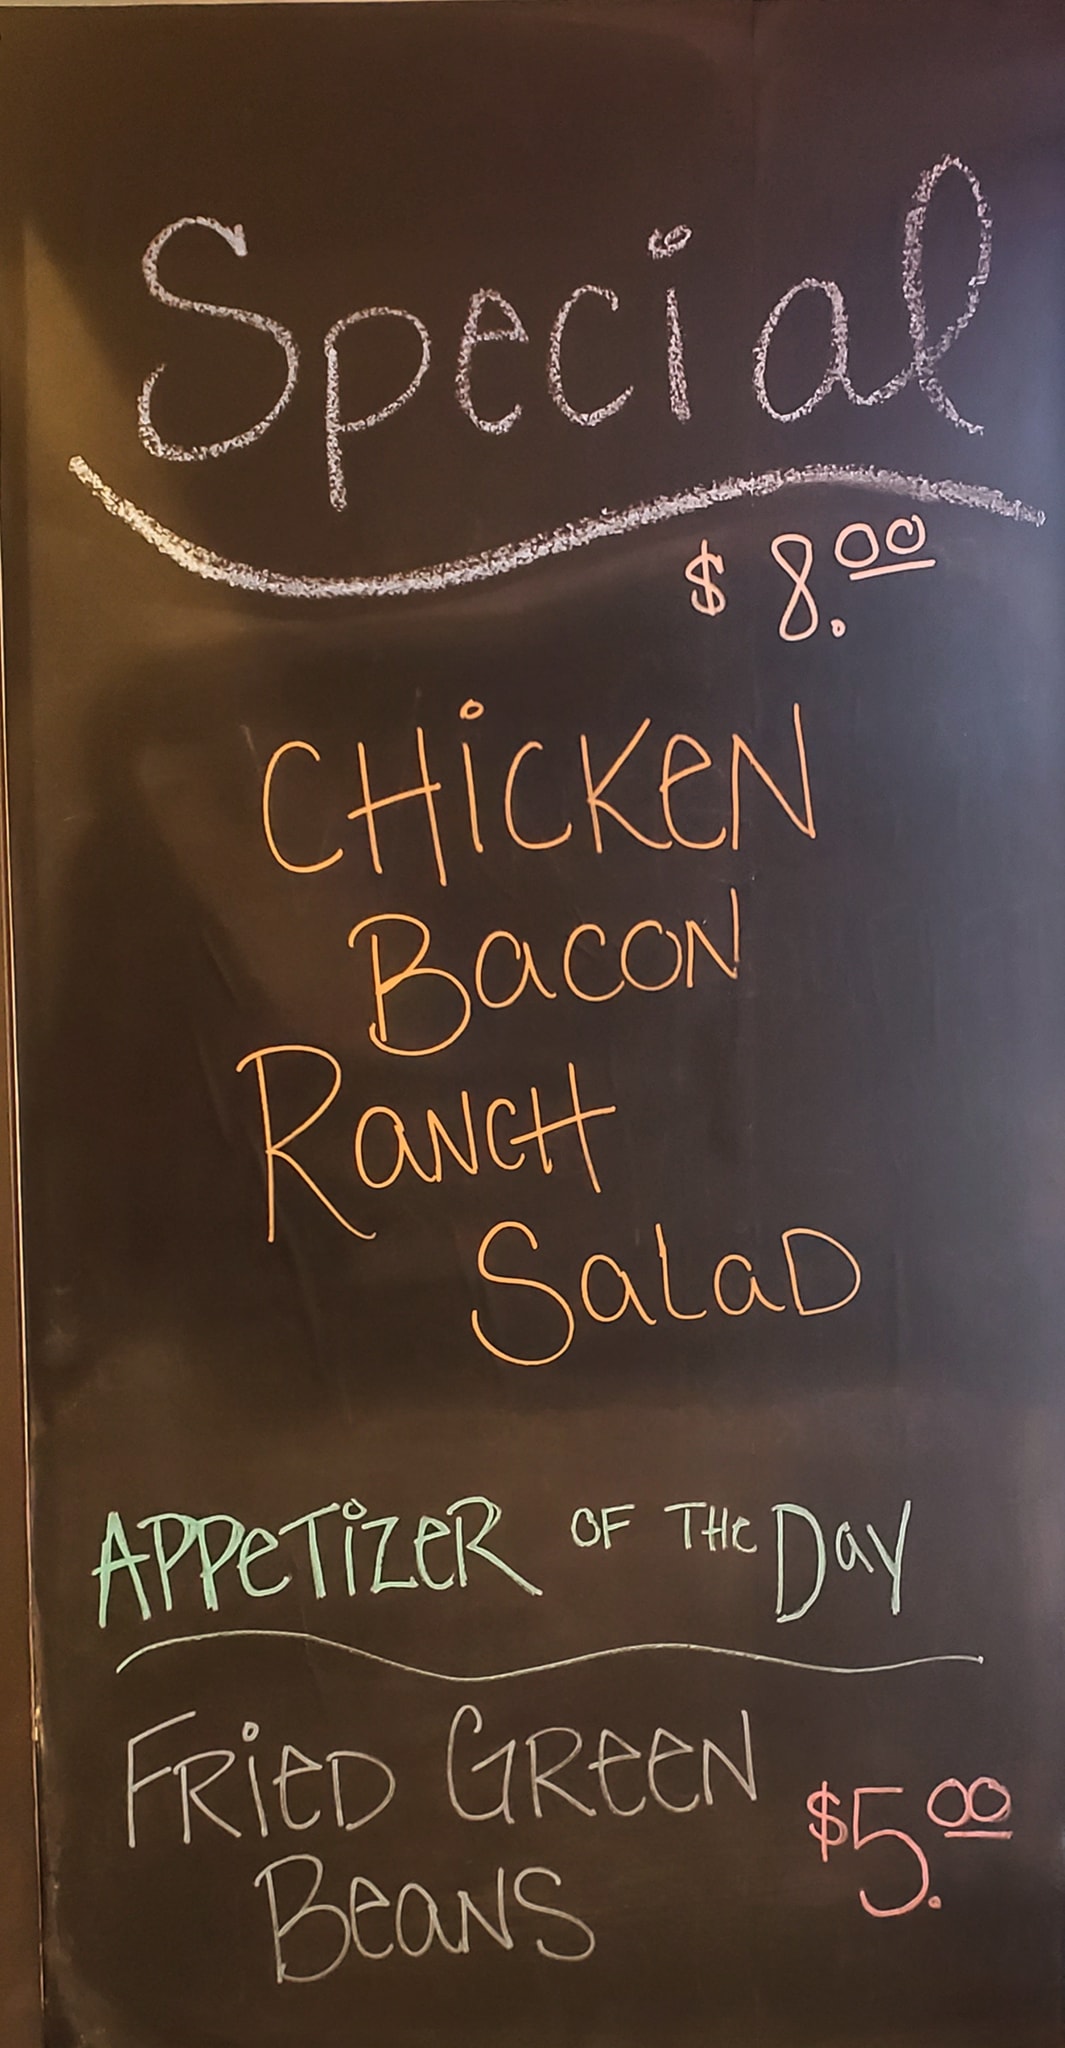 Special
$ 8.00
CHiCKeN
BaCON
RaNCH
SaLaD
APPeTiZeR OF THe Day
FRieD GReeN
$5.00
BeaNS